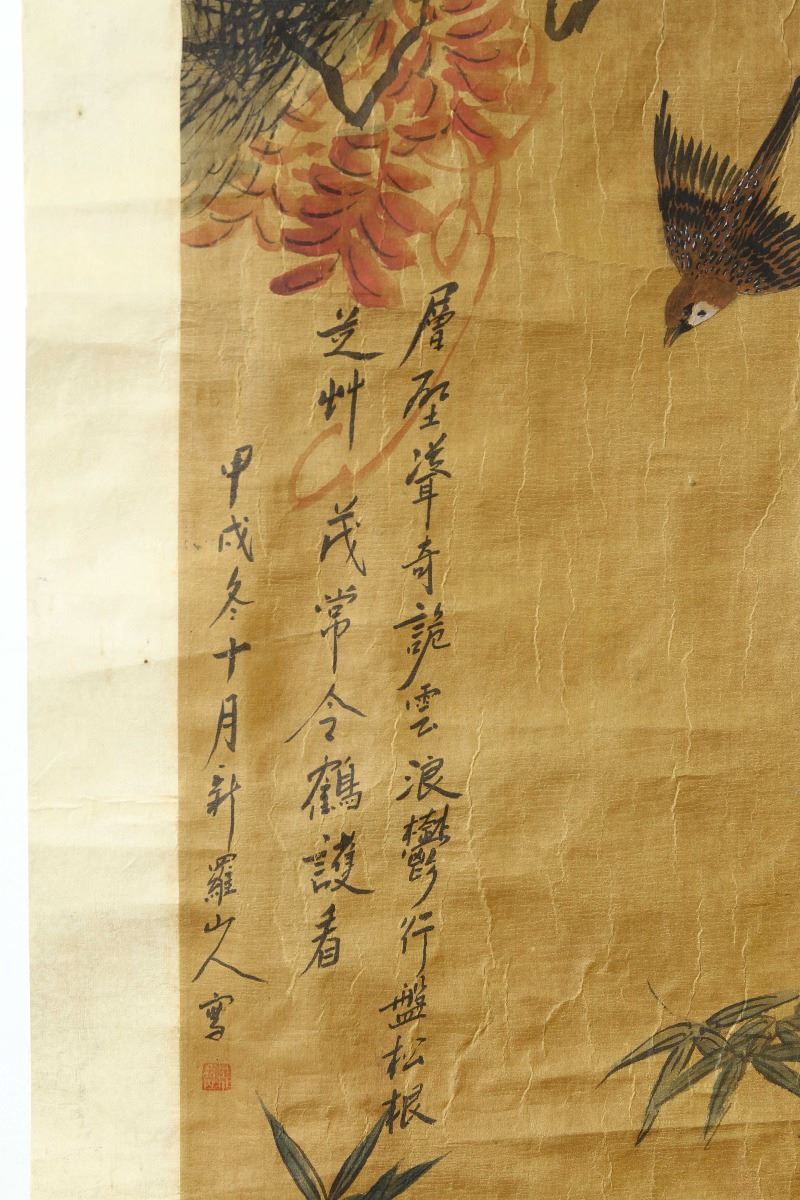 層壁聳奇詭雲浪鬱行盤松根
芝艸茂常令鶴護看
甲戌冬十月新羅山人寫